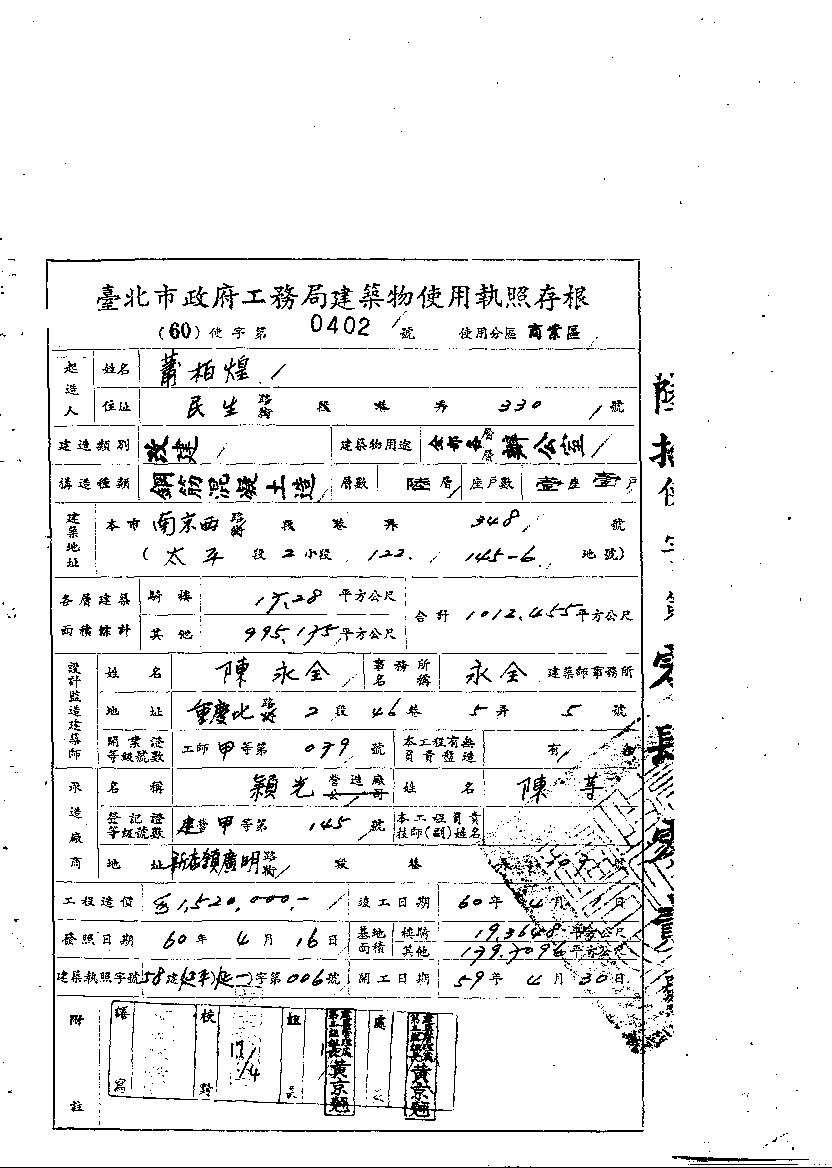 臺北市政府工務局建築物使用執照存根
(60) 使字第 0402 號 使用分區 商業區
起造人 姓名 蕭柏煌
住址 民生 路街 段 巷 弄 330 號
建造類別 改建 建築物用途 層層 辦公室
構造種類 鋼筋混凝土造 層數 陸層 座戶數 壹座壹戶
建築地址 本市 南京西 路街 段 巷 弄 348 號
(太平 段 2 小段 122. 145-6 地號)
各層建築面積綜計 騎樓 17.28 平方公尺 合計 1012.455 平方公尺
其他 995.175 平方公尺
設計監造建築師 姓名 陳永全 事務所名稱 永全 建築師事務所
地址 重慶北 路 2 段 46 巷 5 弄 5 號
開業證等級號數 工師 甲 等第 039 號 本工程有無負責監造 有
承造廠商 名稱 穎光 營造廠公司 姓名 陳
登記證等級號數 建營 甲 等第 145 號 本工程負責技師(副)姓名
地址 新店鎮廣明 路街 段 巷
工程造價 $1,520,000.- 竣工日期 60 年 4 月 1 日
發照日期 60 年 4 月 16 日 基地面積 騎樓 19.3648 平方公尺
其他 139.7096 平方公尺
建築執照字號 58 建 字第 006 號 開工日期 59 年 4 月 30 日
附註 繕寫 校對 17/4 黃京翹 處 黃京翹